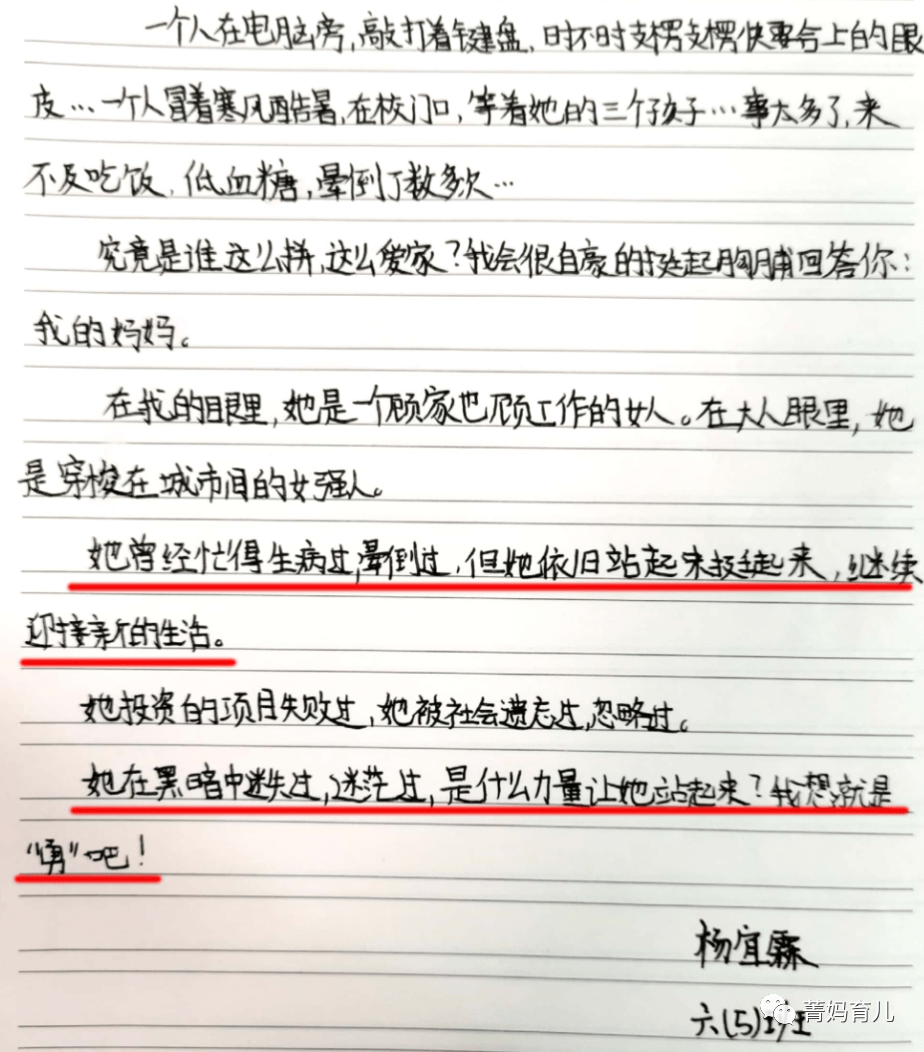 一个人在电脑旁,敲打着键盘,时不时支楞支楞快要合上的眼
皮…一个人冒着寒风酷暑,在校门口,等着她的三个孩子…事太多了,来
不及吃饭,低血糖,晕倒了数多次…
究竟是谁这么拼,这么爱家?我会很自豪的挺起胸脯回答你:
我的妈妈。
在我的眼里,她是一个顾家也顾工作的女人。在大人眼里,她
是穿梭在城市间的女强人。
她曾经忙得生病过,晕倒过,但她依旧站起来挺起来,继续
迎接新的生活。
她投资的项目失败过,她被社会遗忘过,忽略过。
她在黑暗中迷失过,迷茫过,是什么力量让她站起来?我想就是
“勇”吧!
杨宜霖
六(5)班
菁妈育儿